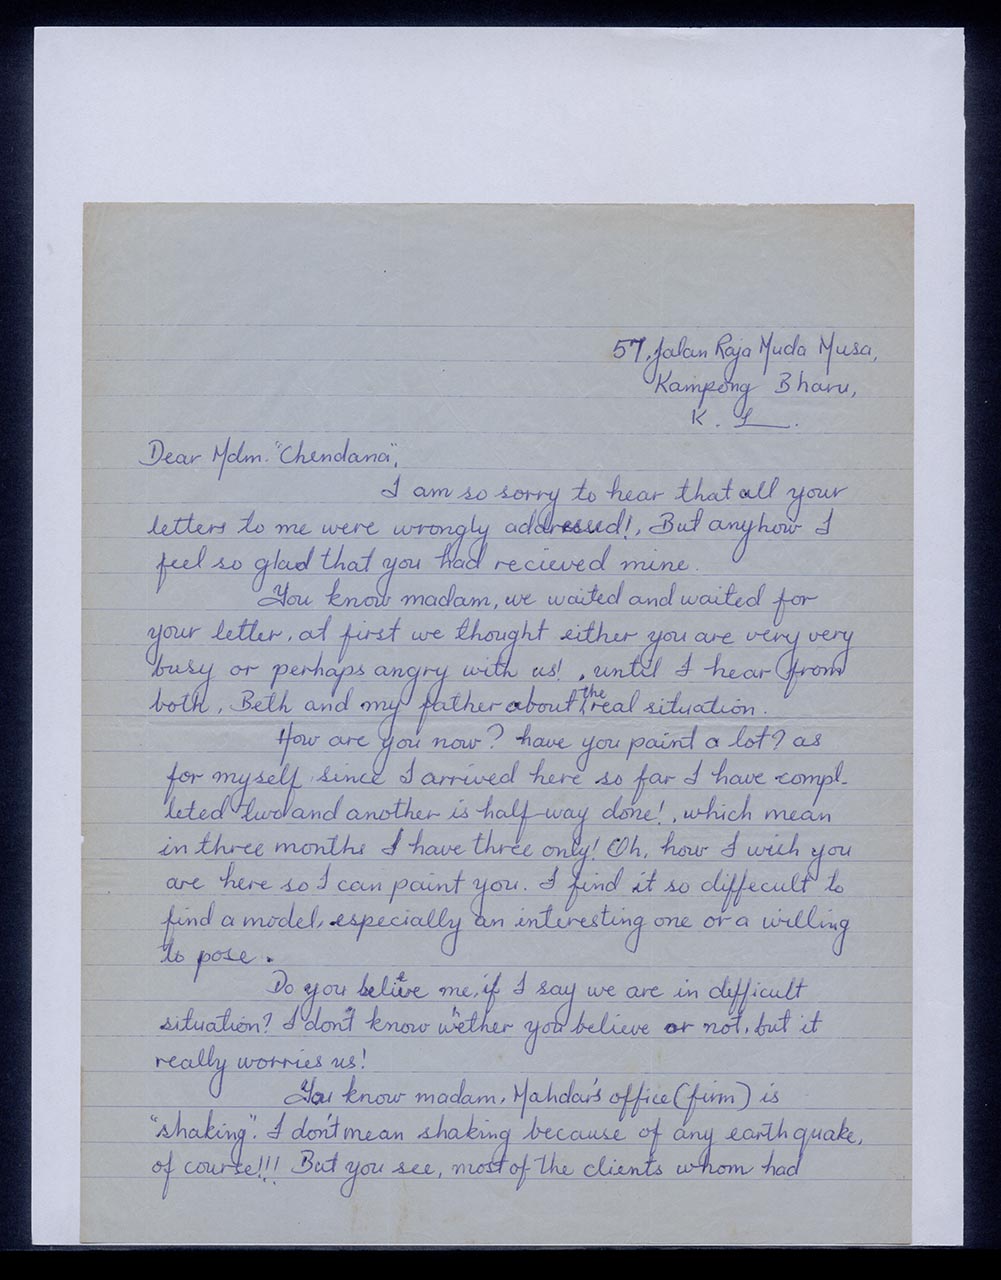 57, Jalan Raja Muda Musa,
Kampong Bharu,
K. L.
Dear Mdm. "Chendana",
I am so sorry to hear that all your
letters to me were wrongly addressed!, But anyhow I
feel so glad that you had recieved mine.
You know madam, we waited and waited for
your letter, at first we thought either you are very very
busy or perhaps angry with us!, until I hear from
both, Beth and my father about the real situation.
How are you now? have you paint a lot? as
for myself, since I arrived here so far I have compl-
leted two and another is half-way done!, which mean
in three months I have three only! Oh, how I wish you
are here so I can paint you. I find it so diffecult to
find a model, especially an interesting one or a willing
to pose.
Do you believe me, if I say we are in difficult
situation? I don't know whether you believe or not, but it
really worries us!
You know madam, Mahdar's office (firm) is
"shaking". I don't mean shaking because of any earthquake,
of course!!! But you see, most of the clients whom had